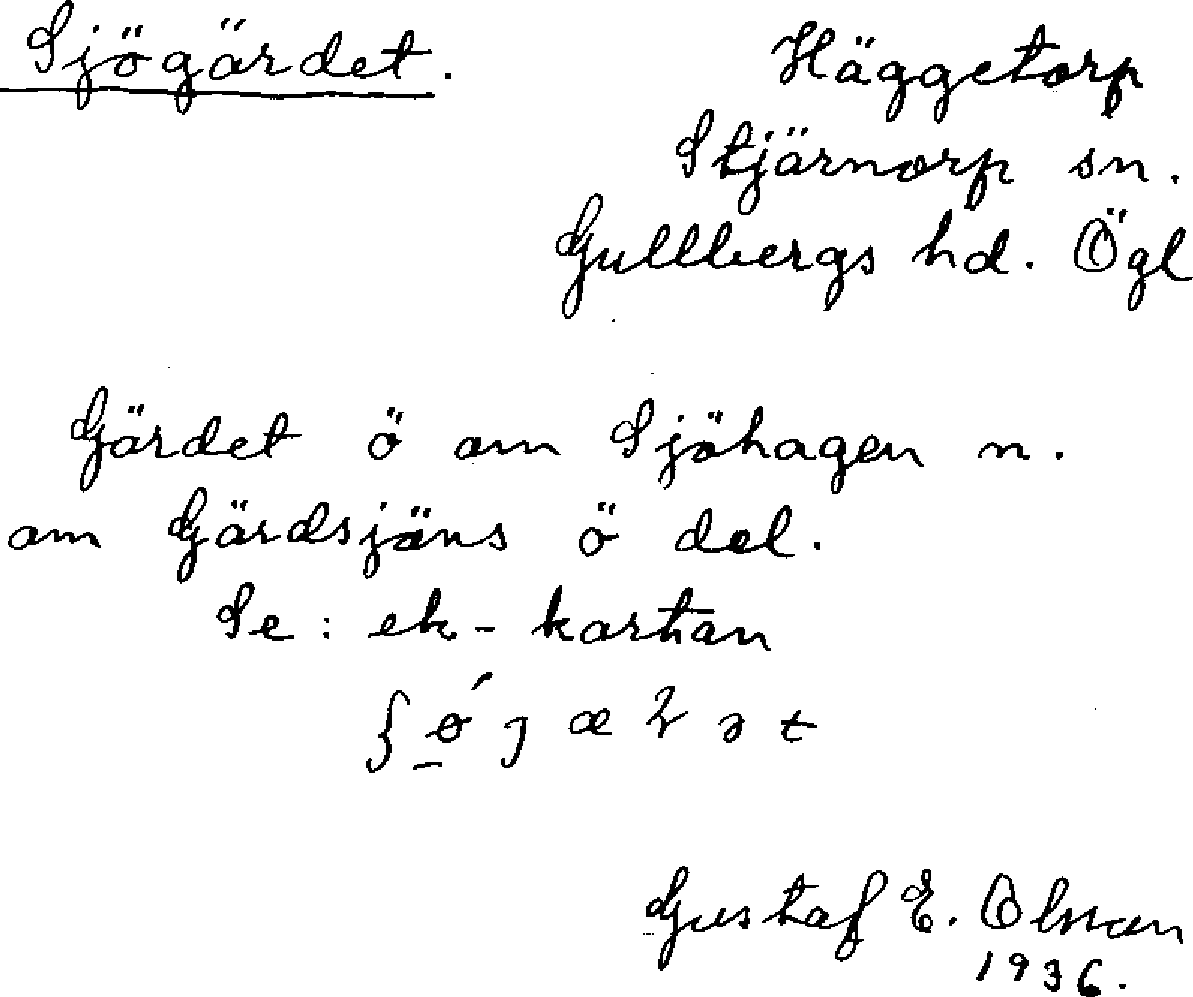 Sjögärdet.
Häggetorp
Stjärnorp sn.
Gullbergs hd. Ögl
Gärdet ö om Sjöhagen n.
om Gärdsjöns ö del.
Se: ek-kartan
Gustaf E. Olsson
1936.